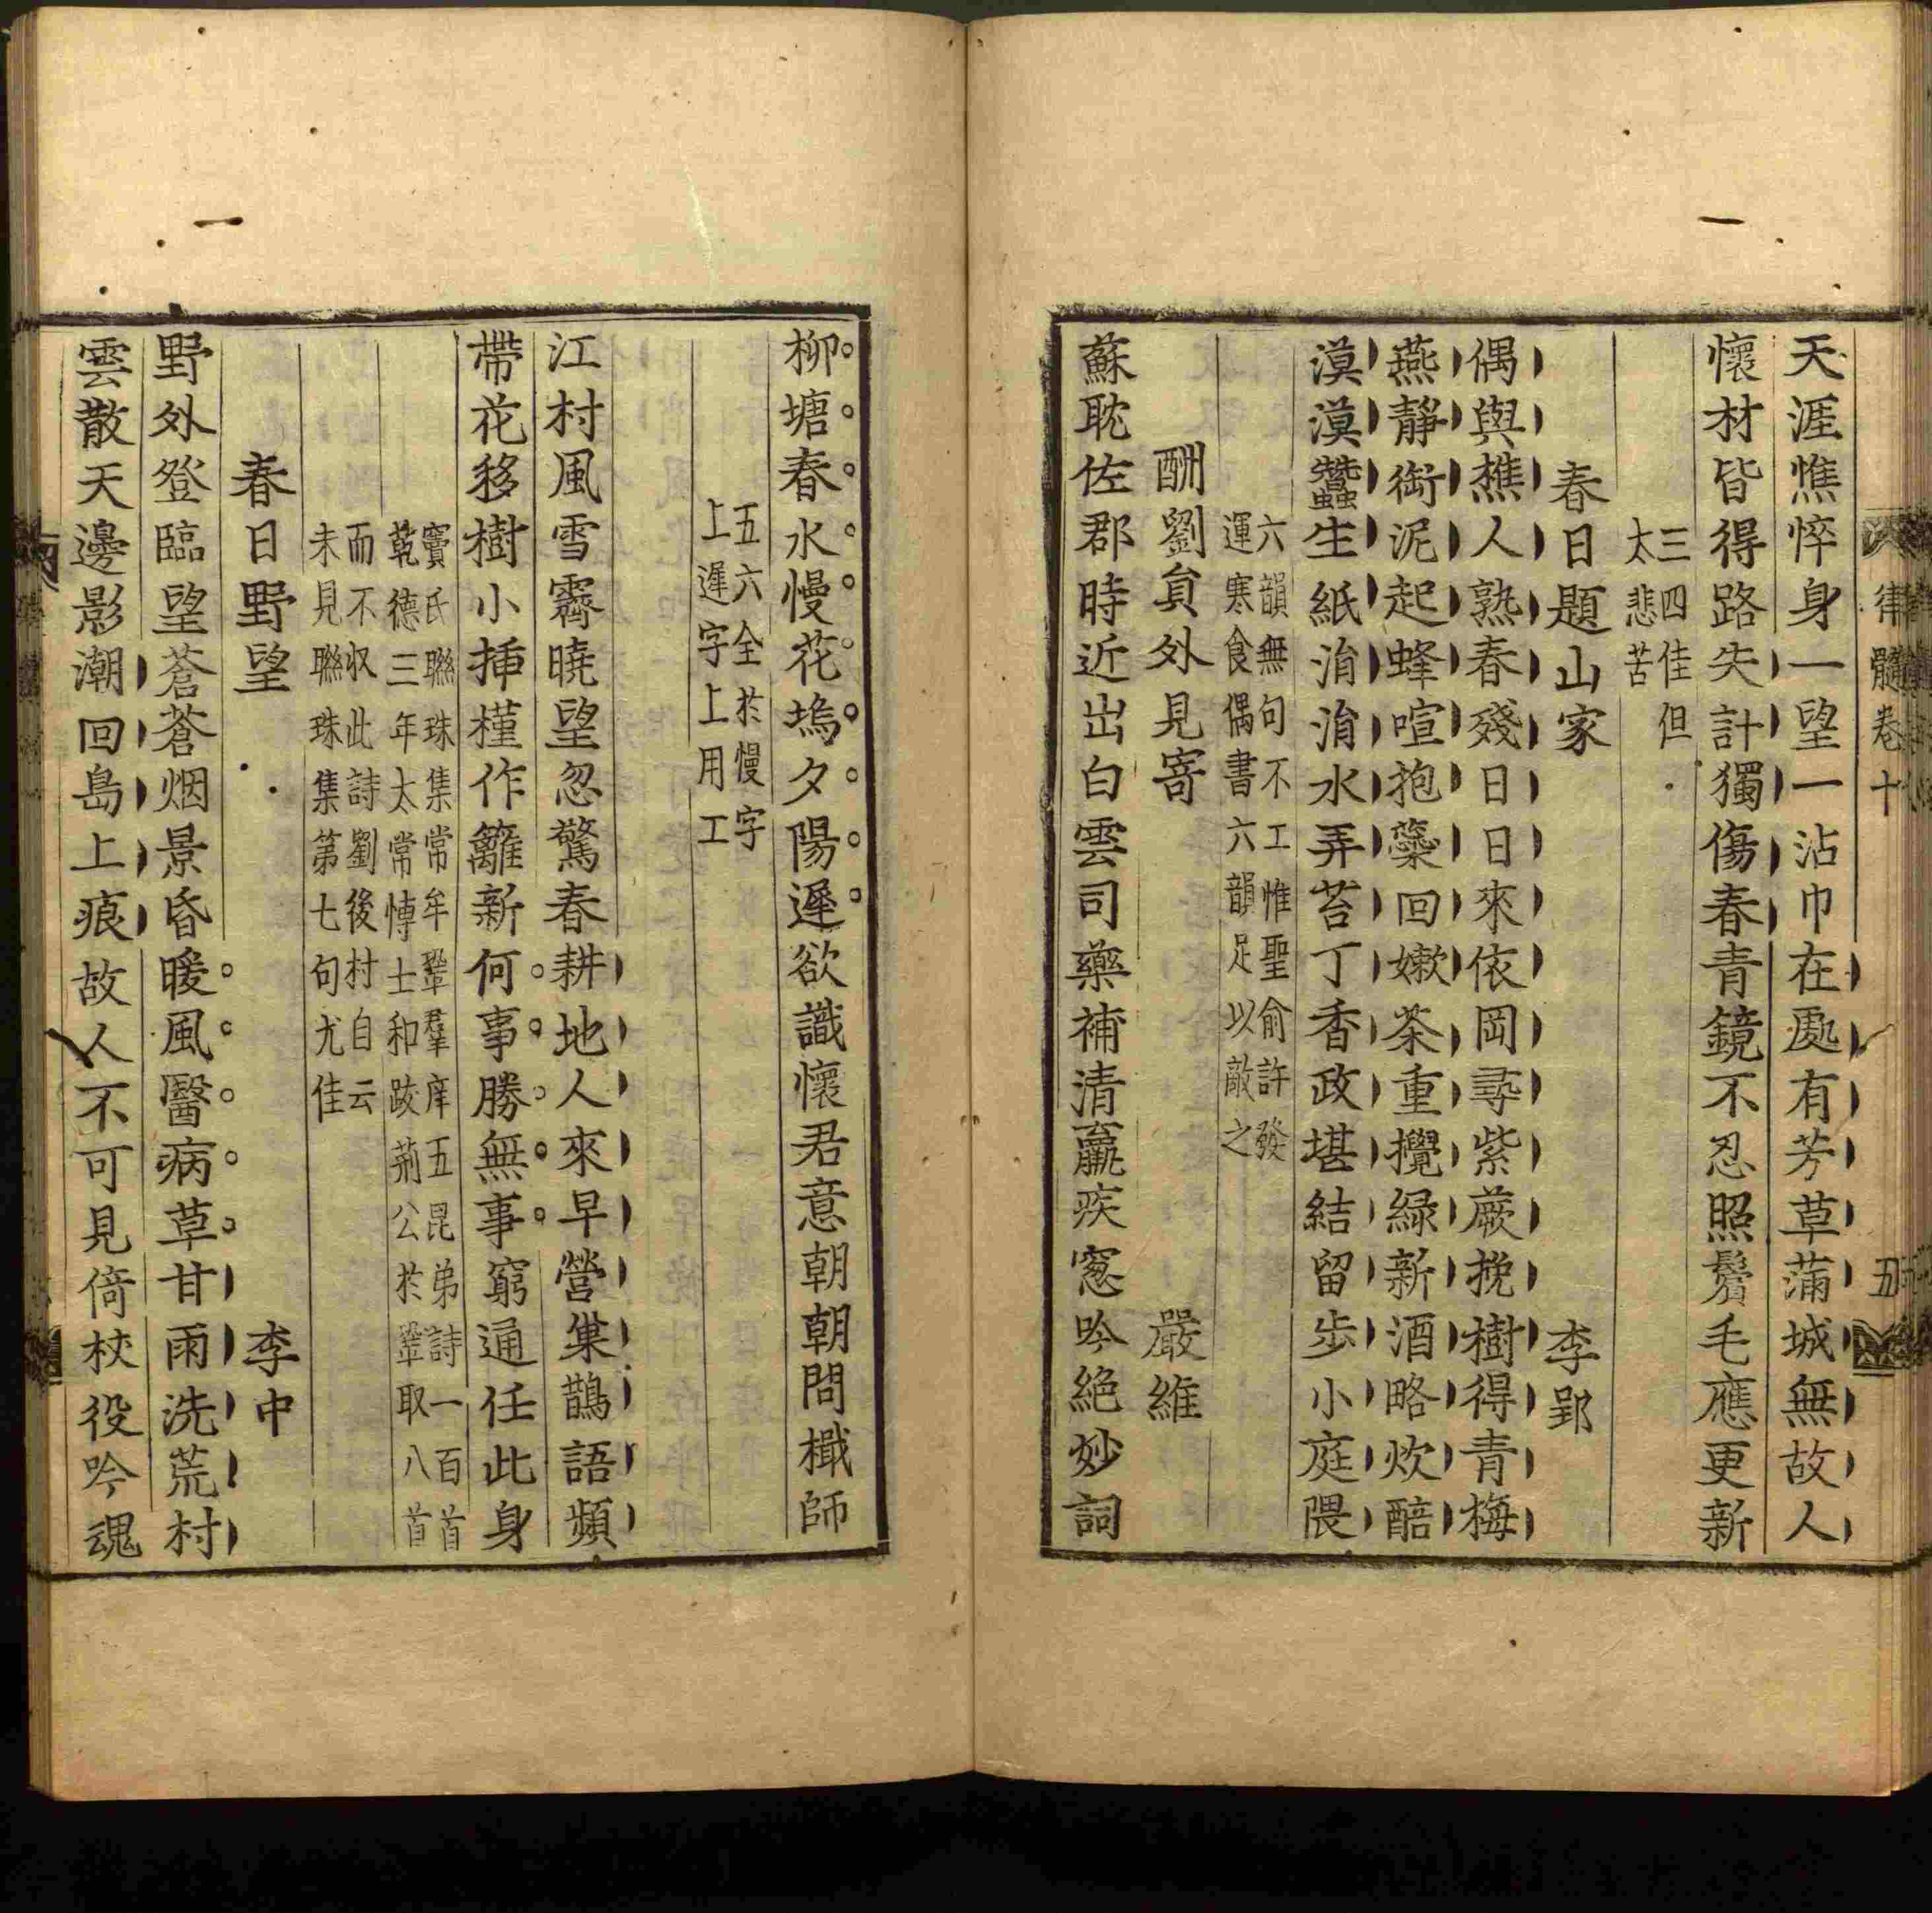 律髓卷十
五
天涯憔悴身一望一沾巾在處有芳草蒲城無故人
懷材皆得路失計獨傷春青鏡不忍照鬢毛應更新
三四佳但
太悲苦
春日題山家 李郢
偶與樵人熟春殘日日來依岡尋紫蕨挽樹得青梅
燕靜銜泥起蜂喧抱蘂回嫰茶重攪綠新酒略炊醅
漠漠蠶生紙涓涓水弄苔丁香政堪結留步小庭隈
六韻無句不工惟聖俞許發
運寒食偶書六韻足以敵之
酬劉負外見寄 嚴維
蘇耽佐郡時近出白雲司藥補清羸疾窻吟絶妙詞
柳塘春水慢花塢夕陽遲欲識懷君意朝朝問檝師
五六全於慢字
上遲字上用工
江村風雪霽曉望忽驚春耕地人來早營巢鵲語頻
帶花移樹小揷槿作籬新何事勝無事窮通任此身
竇氏聯珠集常牟鞏羣庠五昆弟詩一百首
乾德三年太常愽士和跂荊公於鞏取八首
而不収此詩劉後村自云
未見聯珠集第七句尤佳
春日野望 李中
野外登臨望蒼蒼烟景昏暖風醫病草甘雨洗荒村
雲散天邊影潮回島上痕故人不可見倚杖役吟魂